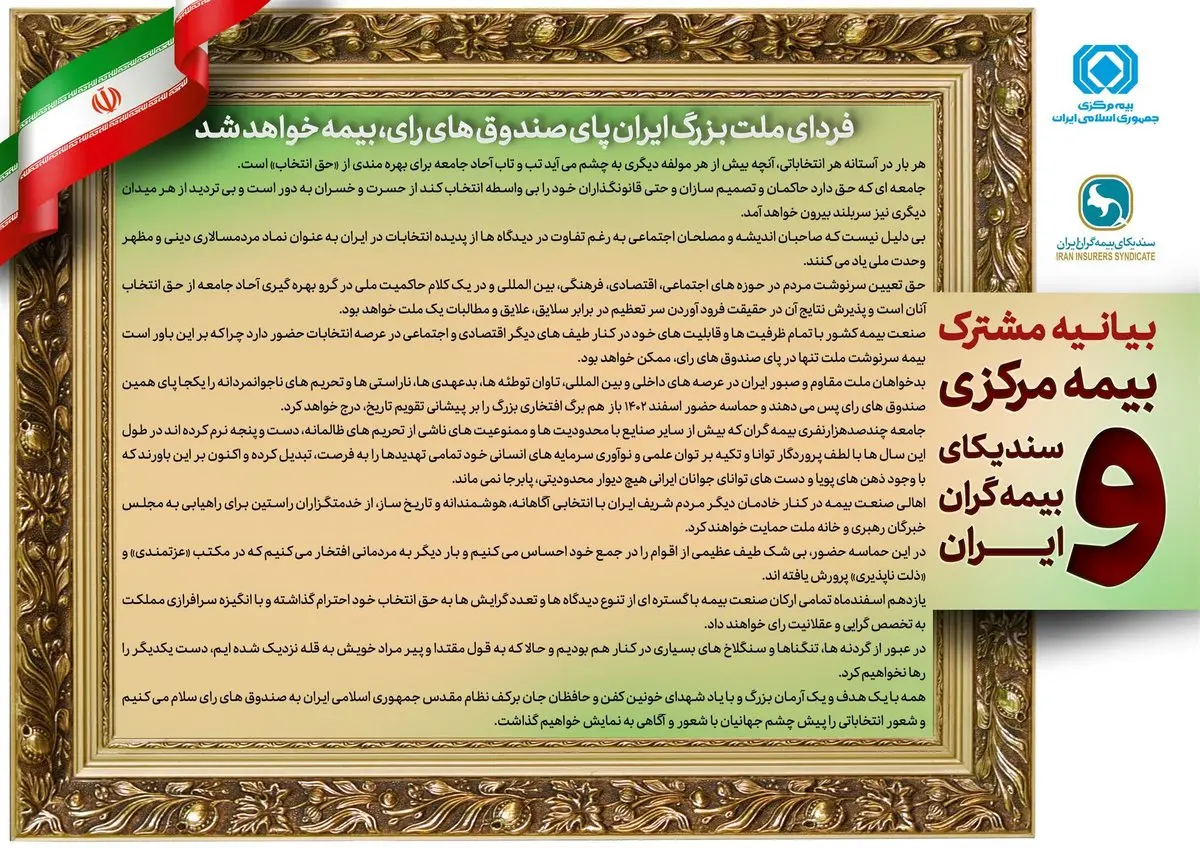 بیمه مرکزی
جمهوری اسلامی ایران
سندیکای بیمه‌گران ایران
IRAN INSURERS SYNDICATE
بیانیه مشترک
بیمه مرکزی
و
سندیکای
بیمه گران
ایران
فردای ملت بزرگ ایران پای صندوق های رای، بیمه خواهد شد
هر بار در آستانه هر انتخاباتی، آنچه بیش از هر مولفه دیگری به چشم می آید تب و تاب آحاد جامعه برای بهره مندی از «حق انتخاب» است.
جامعه ای که حق دارد حاکمان و تصمیم سازان و حتی قانونگذاران خود را بی واسطه انتخاب کند از حسرت و خسران به دور است و بی تردید از هر میدان
دیگری نیز سربلند بیرون خواهد آمد.
بی دلیل نیست که صاحبان اندیشه و مصلحان اجتماعی به رغم تفاوت در دیدگاه ها از پدیده انتخابات در ایران به عنوان نماد مردمسالاری دینی و مظهر
وحدت ملی یاد می کنند.
حق تعیین سرنوشت مردم در حوزه های اجتماعی، اقتصادی، فرهنگی، بین المللی و در یک کلام حاکمیت ملی در گرو بهره گیری آحاد جامعه از حق انتخاب
آنان است و پذیرش نتایج آن در حقیقت فرود آوردن سر تعظیم در برابر سلایق، علایق و مطالبات یک ملت خواهد بود.
صنعت بیمه کشور با تمام ظرفیت ها و قابلیت های خود در کنار طیف های دیگر اقتصادی و اجتماعی در عرصه انتخابات حضور دارد چراکه بر این باور است
بیمه سرنوشت ملت تنها در پای صندوق های رای، ممکن خواهد بود.
بدخواهان ملت مقاوم و صبور ایران در عرصه های داخلی و بین المللی، تاوان توطئه ها، بدعهدی ها، ناراستی ها و تحریم های ناجوانمردانه را یکجا پای همین
صندوق های رای پس می دهند و حماسه حضور اسفند ۱۴۰۲ باز هم برگ افتخاری بزرگ را بر پیشانی تقویم تاریخ، درج خواهد کرد.
جامعه چندصدهزارنفری بیمه گران که بیش از سایر صنایع با محدودیت ها و ممنوعیت های ناشی از تحریم های ظالمانه، دست و پنجه نرم کرده اند در طول
این سال ها با لطف پروردگار توانا و تکیه بر توان علمی و نوآوری سرمایه های انسانی خود تمامی تهدیدها را به فرصت، تبدیل کرده و اکنون بر این باورند که
با وجود ذهن های پویا و دست های توانای جوانان ایرانی هیچ دیوار محدودیتی، پابرجا نمی ماند.
اهالی صنعت بیمه در کنار خادمان دیگر مردم شریف ایران با انتخابی آگاهانه، هوشمندانه و تاریخ ساز، از خدمتگزاران راستین برای راهیابی به مجلس
خبرگان رهبری و خانه ملت حمایت خواهند کرد.
در این حماسه حضور، بی شک طیف عظیمی از اقوام را در جمع خود احساس می کنیم و بار دیگر به مردمانی افتخار می کنیم که در مکتب «عزتمندی» و
«ذلت ناپذیری» پرورش یافته اند.
یازدهم اسفندماه تمامی ارکان صنعت بیمه با گستره ای از تنوع دیدگاه ها و تعدد گرایش ها به حق انتخاب خود احترام گذاشته و با انگیزه سرافرازی مملکت
به تخصص گرایی و عقلانیت رای خواهند داد.
در عبور از گردنه ها، تنگناها و سنگلاخ های بسیاری در کنار هم بودیم و حالا که به قول مقتدا و پیر مراد خویش به قله نزدیک شده ایم، دست یکدیگر را
رها نخواهیم کرد.
همه با یک هدف و یک آرمان بزرگ و با یاد شهدای خونین کفن و حافظان جان برکف نظام مقدس جمهوری اسلامی ایران به صندوق های رای سلام می کنیم
و شعور انتخاباتی را پیش چشم جهانیان با شعور و آگاهی به نمایش خواهیم گذاشت.